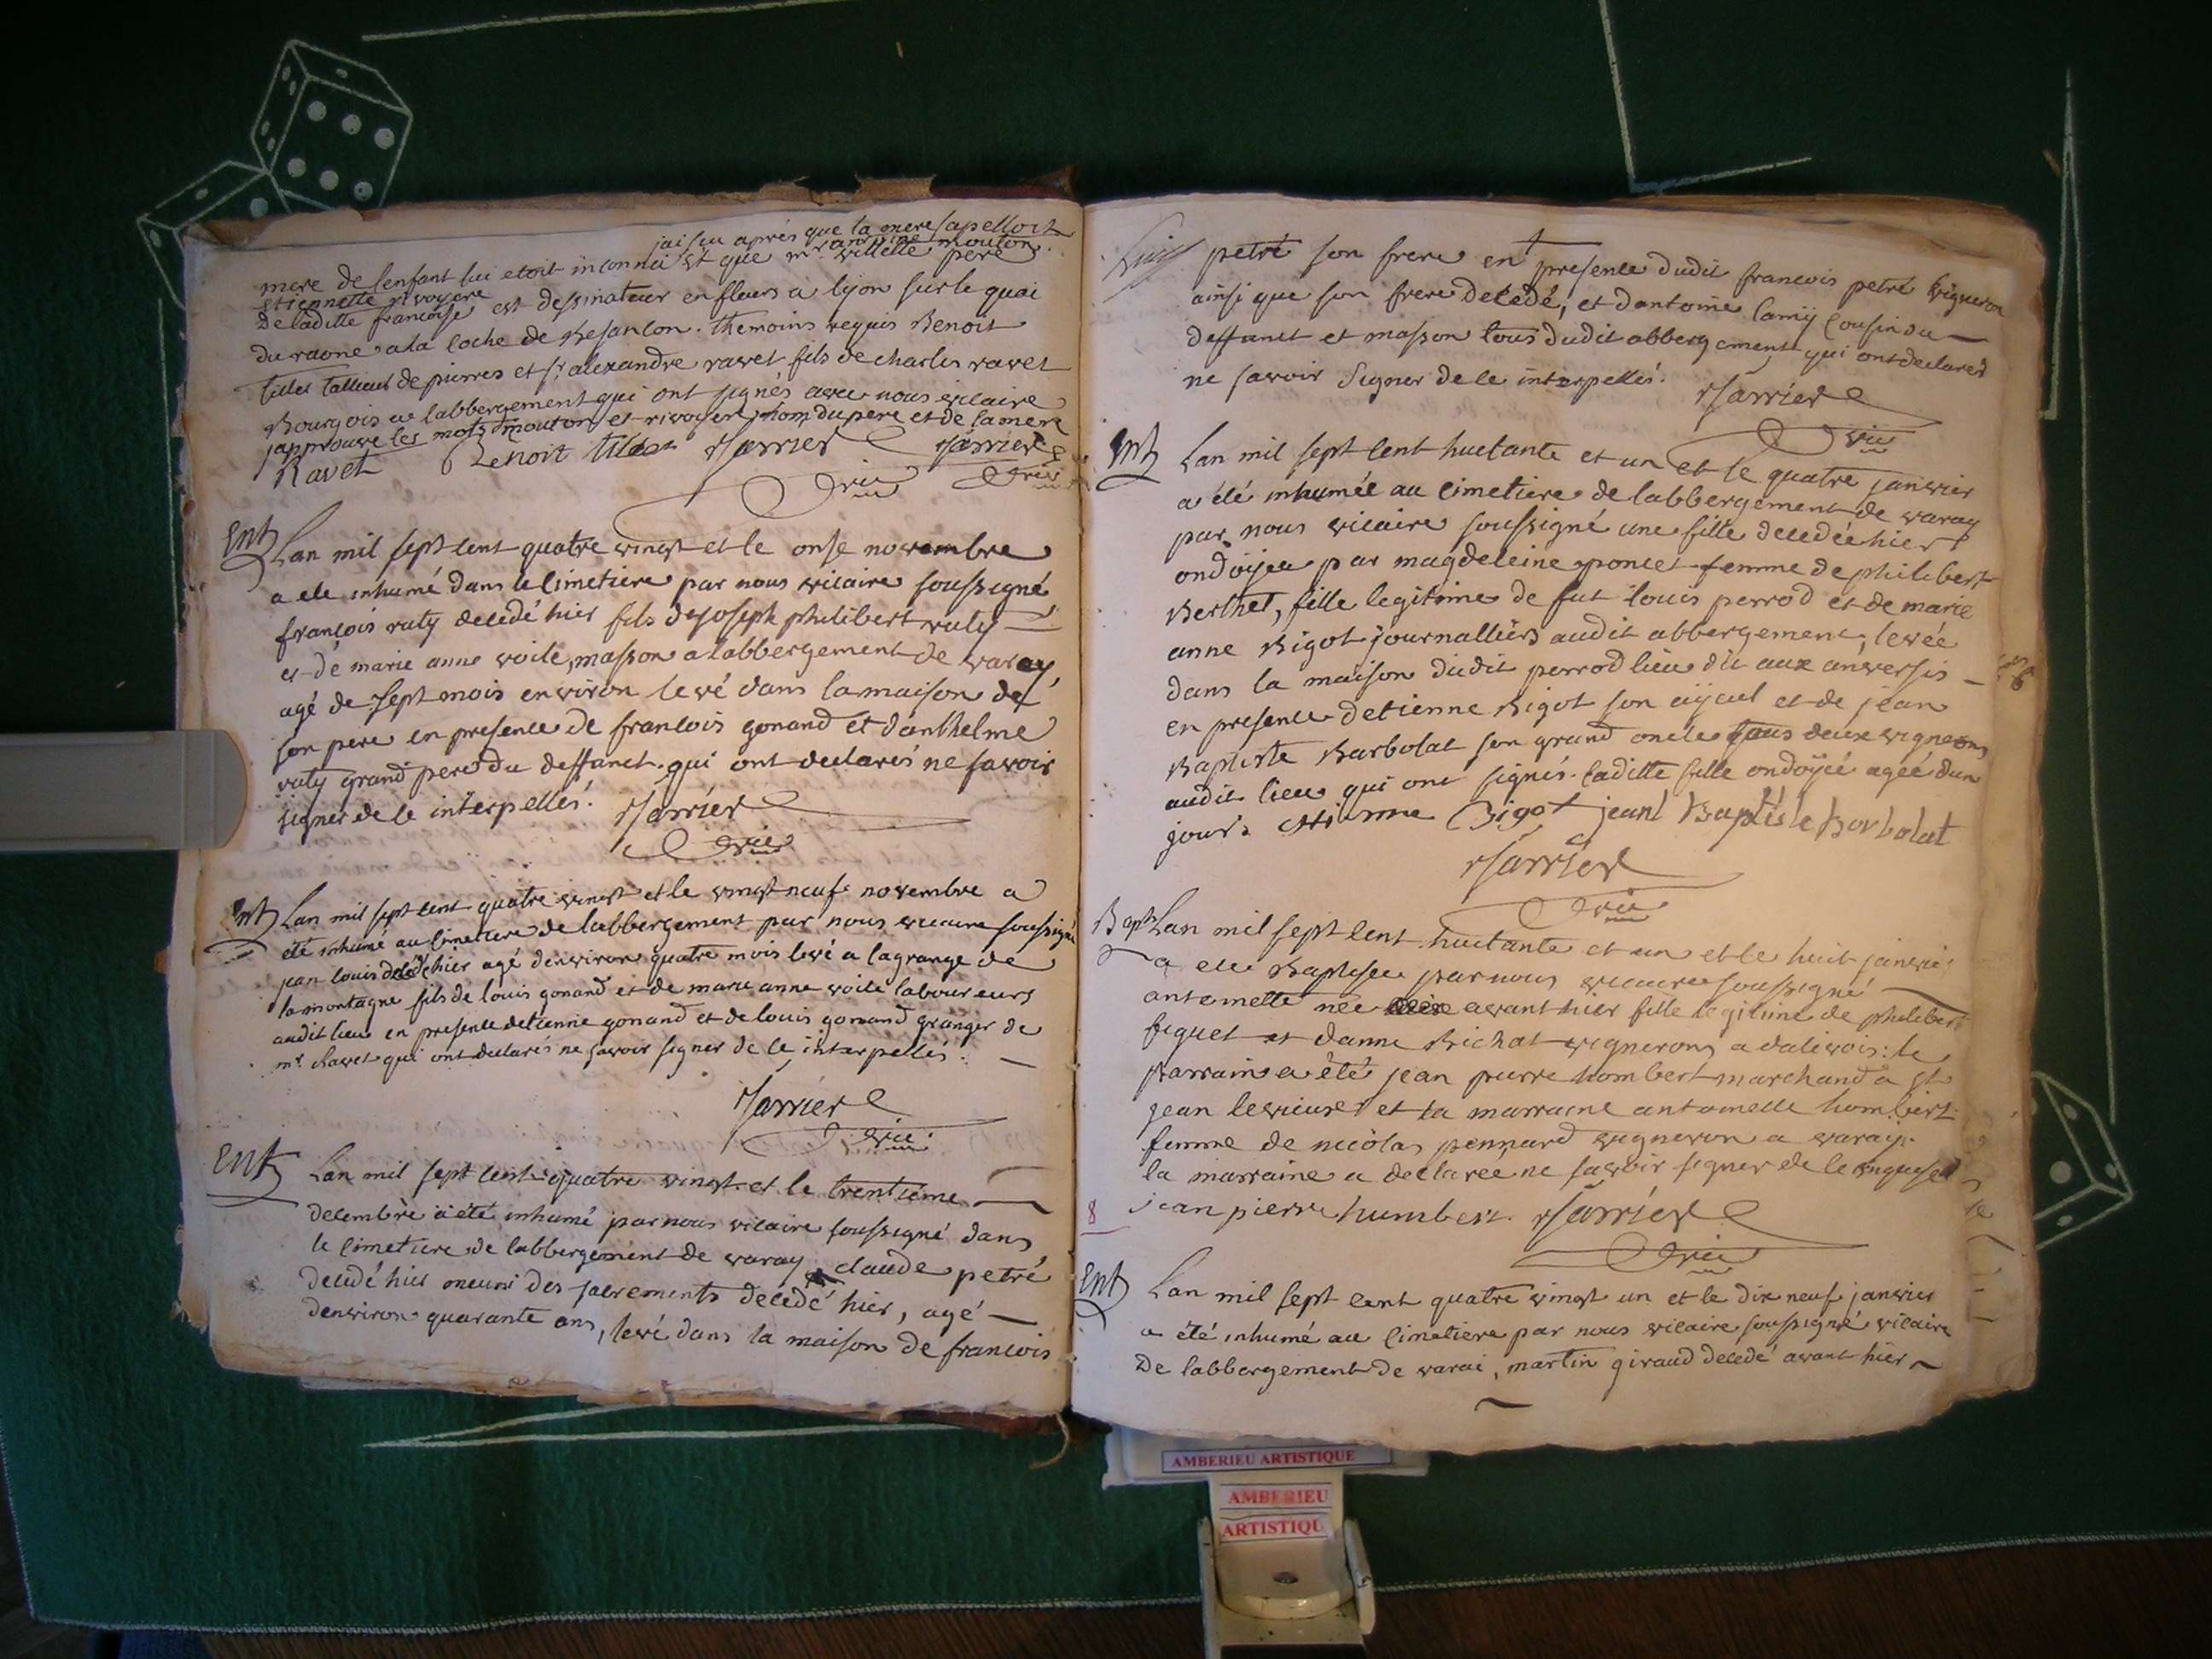 jai su aprés que la mere sapelloit
mere de lenfant lui etoit inconnu et que mr. villette pere
etiennette rivoyere
De laditte francoise est dessinateur en fleurs a lyon sur le quai
du raone a la coche de Besancon. themoins requis Benoit
tillet tallieur de pierres et sr. alexandre ravet fils de charles ravet
Bourgois de labbergement qui ont signés avec nous vicaire
japprouve les mots mouton et rivoyere nom du pere et de la mere
Ravet Benoit tillet Marrier Marrier
vic vic
Ent
Lan mil sept cent quatre vingt et le onse novembre
a ete inhumé dans le cimetiere par nous vicaire soussigné
francois ruty decedé hier fils de joseph philibert ruty
et de marie anne voile, masson a labbergement de varay,
agé de sept mois environ levé dans la maison de
son pere en presence de francois gonand et danthelme
ruty grand pere du deffunct. qui ont declarés ne savoir
signer de ce interpellés. Marrier
vic
Ent
Lan mil sept cent quatre vingt et le vingt neuf novembre a
été inhumé au cimetiere de labbergement par nous vicaire soussigné
jean louis decedé hier agé denviron quatre mois levé a la grange de
la montagne fils de louis gonand et de marie anne voile laboureurs
audit lieu en presence detienne gonand et de louis gonand granger de
mr. Ravet qui ont declarés ne savoir signer de ce interpellés.
Marrier
vic
Ent
Lan mil sept cent quatre vingt et le trentieme
decembre a été inhumé par nous vicaire soussigné dans
le cimetiere de labbergement de varay claude petré
decedé hier muni des sacrements decedé hier, agé
denviron quarante ans, levé dans la maison de francois
petré son frere en presence dudit francois petré vigneron
ainsi que son frere decedé, et dantoine lamy cousin du
deffunct et masson tous dudit abbergement qui ont declarés
ne savoir signer de ce interpellés. Marrier
vic
Ent
Lan mil sept cent huctante et un et le quatre janvier
a été inhumée au cimetiere de labbergement de varay
par nous vicaire soussigné une fille decedée hier
ondoijée par magdeleine poncet femme de philibert
Berthet, fille legitime de fut louis perrod et de marie
anne Bigot journalliers audit abbergement, levée
dans la maison dudit perrod lieu dit aux anversis
en presence detienne Bigot son aijeul et de jean
Baptiste Barbolat son grand oncle tous deux vignerons
audit lieu qui ont signés. laditte fille ondoÿée agée dun
jour. etienne Bigot jeanl Baptiste Borbolat
Marrier
vic
Bapt
Lan mil sept cent huctante et un et le huit janvier
a ete Baptisee par nous vicaire soussigné
antoinette née avant hier fille legitime de philibert
figuet et danne Bichat vignerons a dalivois: le
parrain a été jean pierre hombert marchand a st
jean levieux et la marraine antoinette hombert
femme de nicolas pennard vigneron a varay.
la marraine a declarée ne savoir signer de ce enquise
jean pierre humbert. Marrier
8
vic
Ent
Lan mil sept cent quatre vingt un et le dix neuf janvier
a été inhumé au cimetiere par nous vicaire soussigné vicaire
De labbergement de varai, martin giraud decedé avant hier
AMBERIEU ARTISTIQUE
AMBERIEU
ARTISTIQU